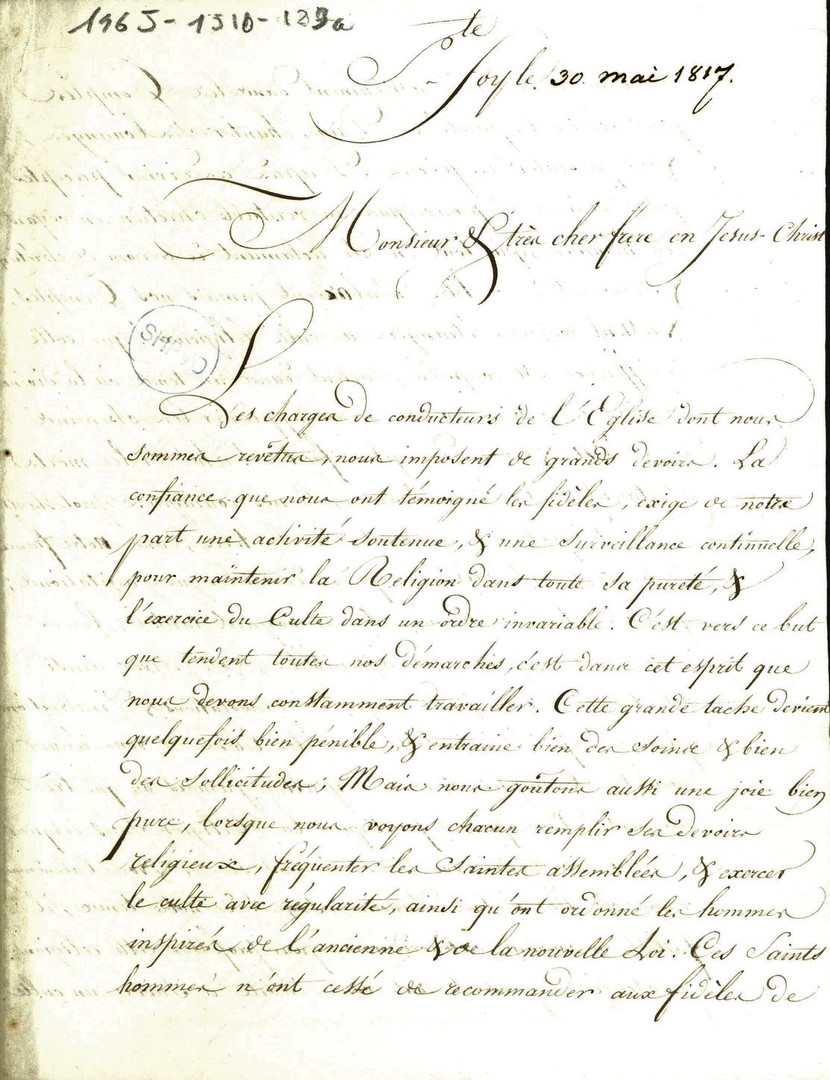 1965-1510-129a
Ste Foy le 30 mai 1817.
Monsieur & très cher frere en Jesus-Christ
Les charges de conducteurs de l'Eglise dont nous
sommes revêtus, nous imposent de grands devoirs. La
confiance que nous ont témoigné les fidèles, exige de notre
part une activité soutenue, & une surveillance continuelle,
pour maintenir la Religion dans toute sa pureté, &
l'exercice du Culte dans un ordre invariable. C'est vers ce but
que tendent toutes nos démarches, c'est dans cet esprit que
nous devons constamment travailler. Cette grande tache devient
quelquefois bien pénible, & entraine bien des soins & bien
des sollicitudes; Mais nous goûtons aussi une joie bien
pure, lorsque nous voyons chacun remplir ses devoirs
religieux, fréquenter les Saintes assemblées, & exercer
le culte avec régularité, ainsi qu'ont ordonné les hommes
inspirés de l'ancienne & de la nouvelle Loi. Ces Saints
hommes n'ont cessé de recommander aux fidèles de